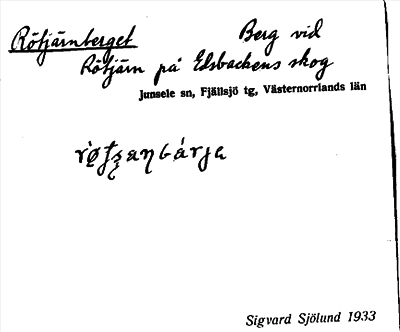 Rötjärnberget Berg vid
Rötjärn på Elsbackens skog
Junsele sn, Fjällsjö tg, Västernorrlands län
Sigvard Sjölund 1933